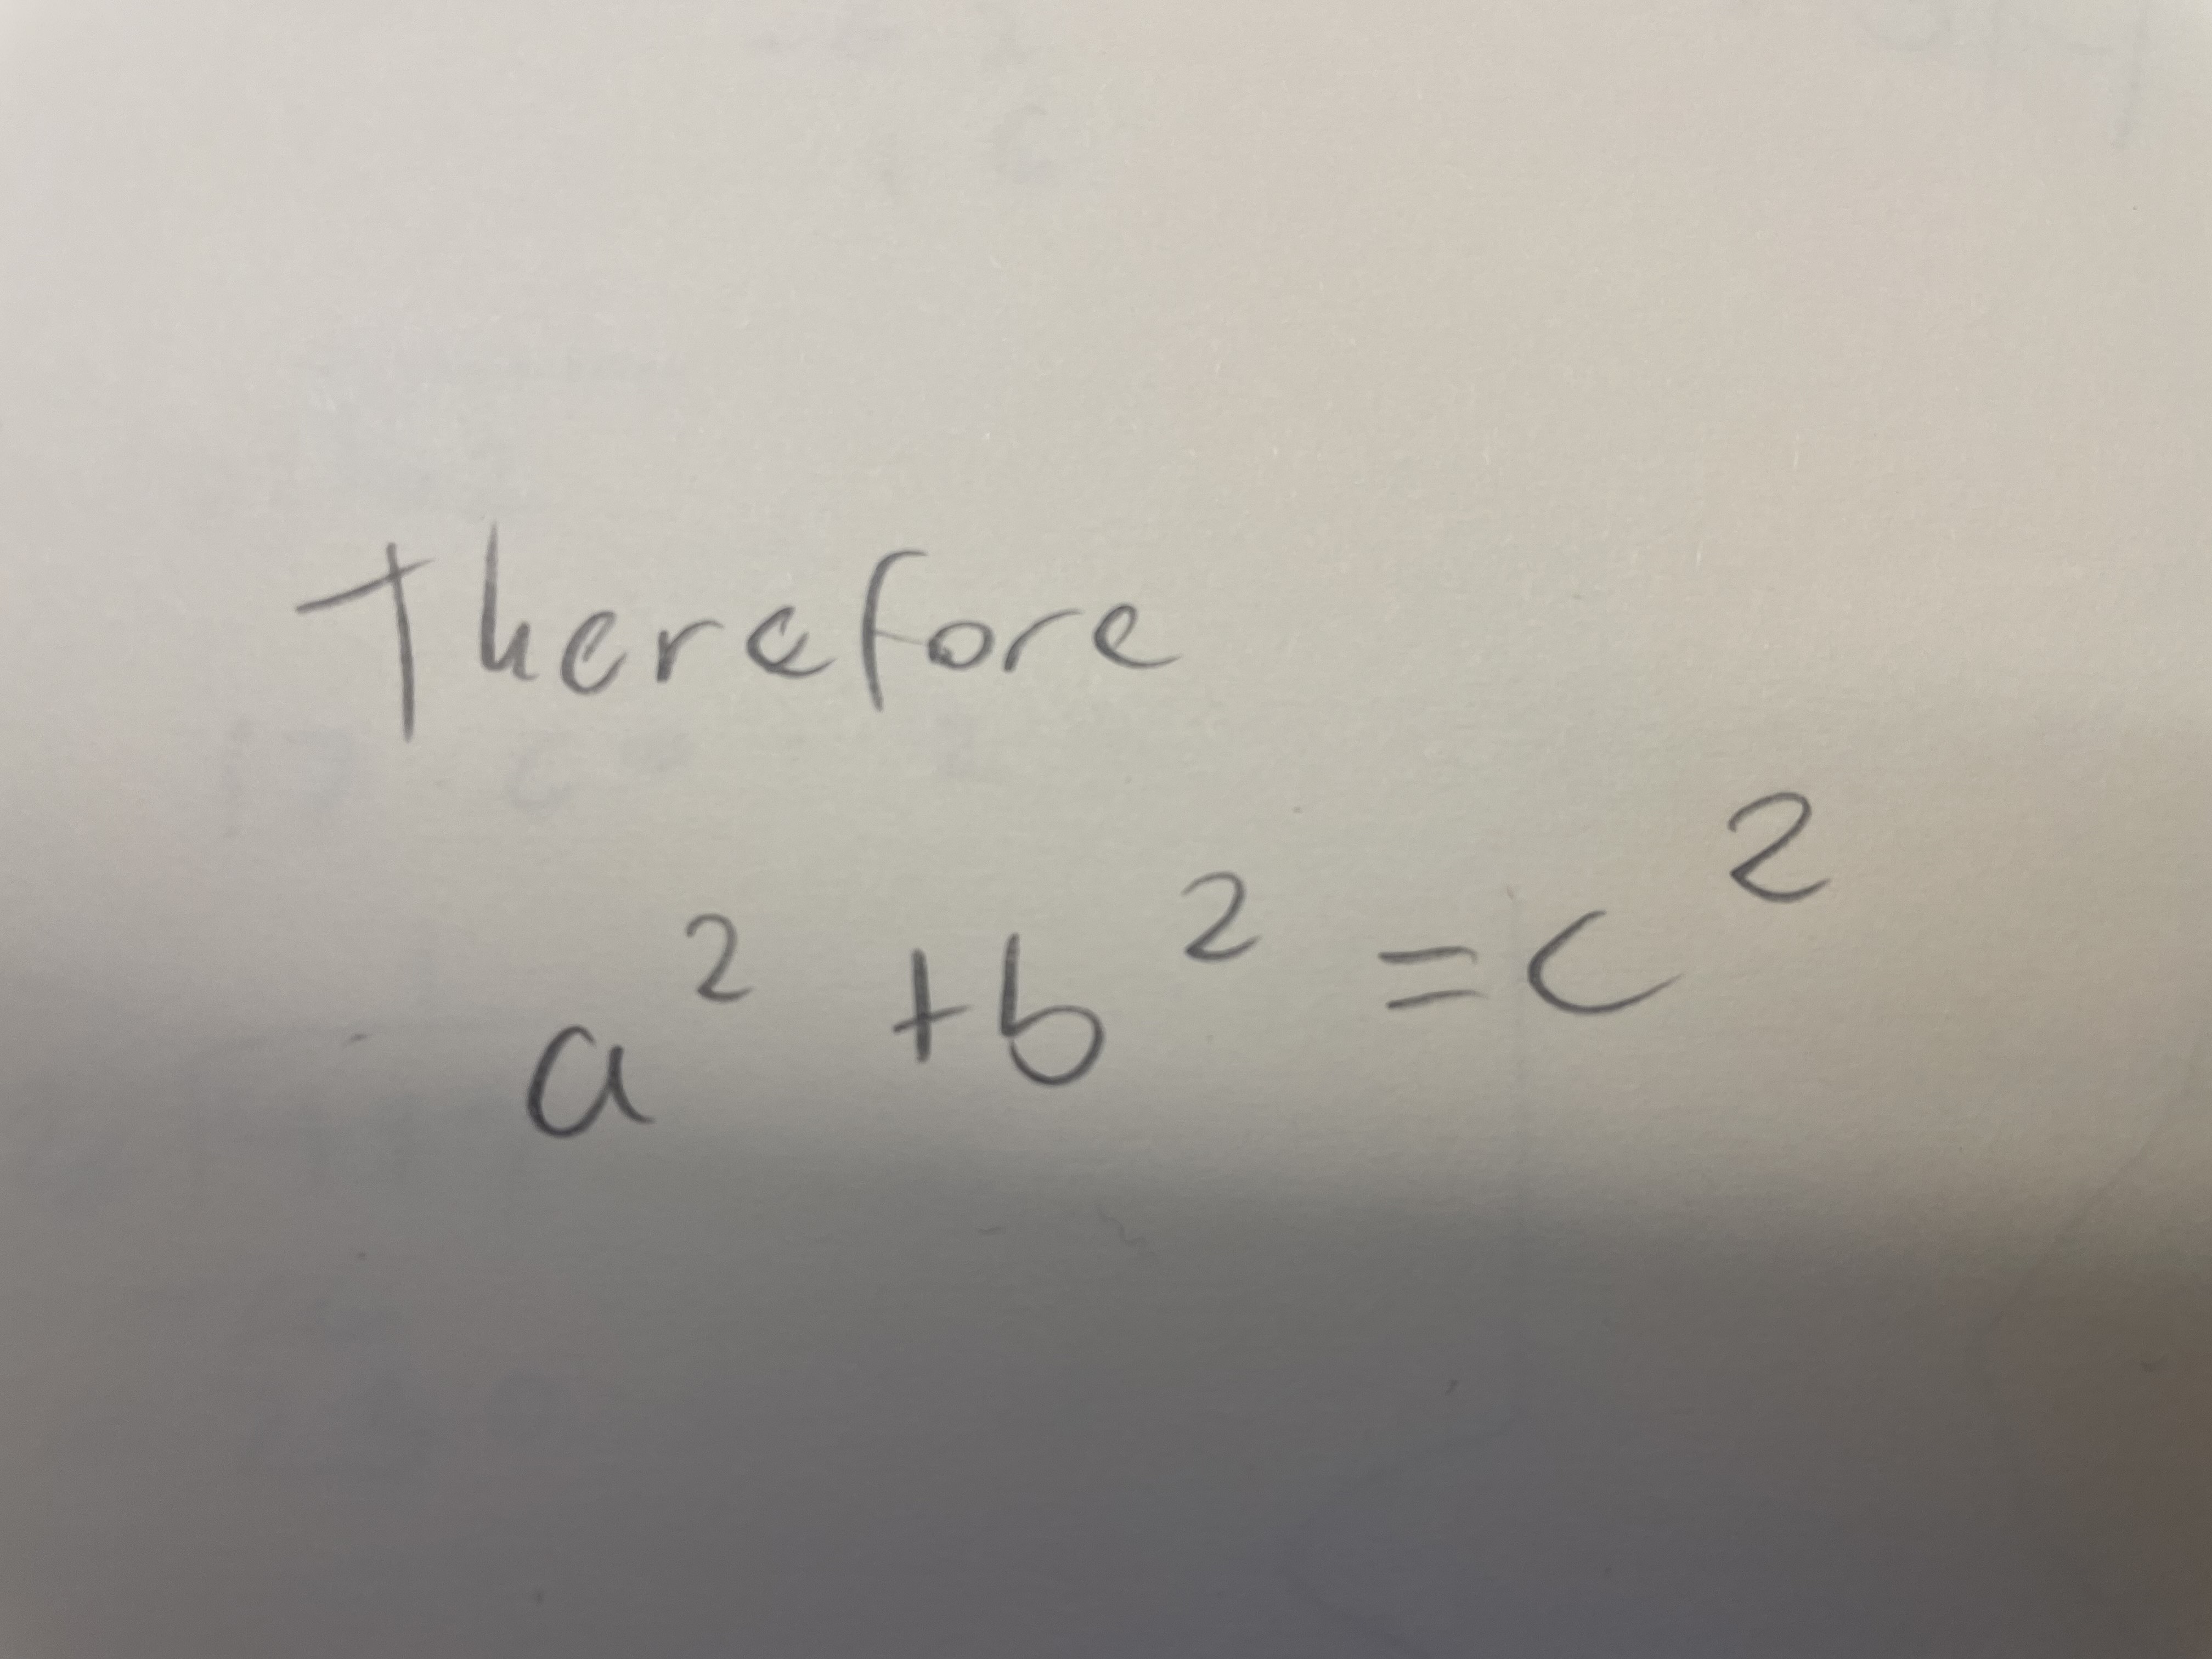 Therefore
a² + b² = c²